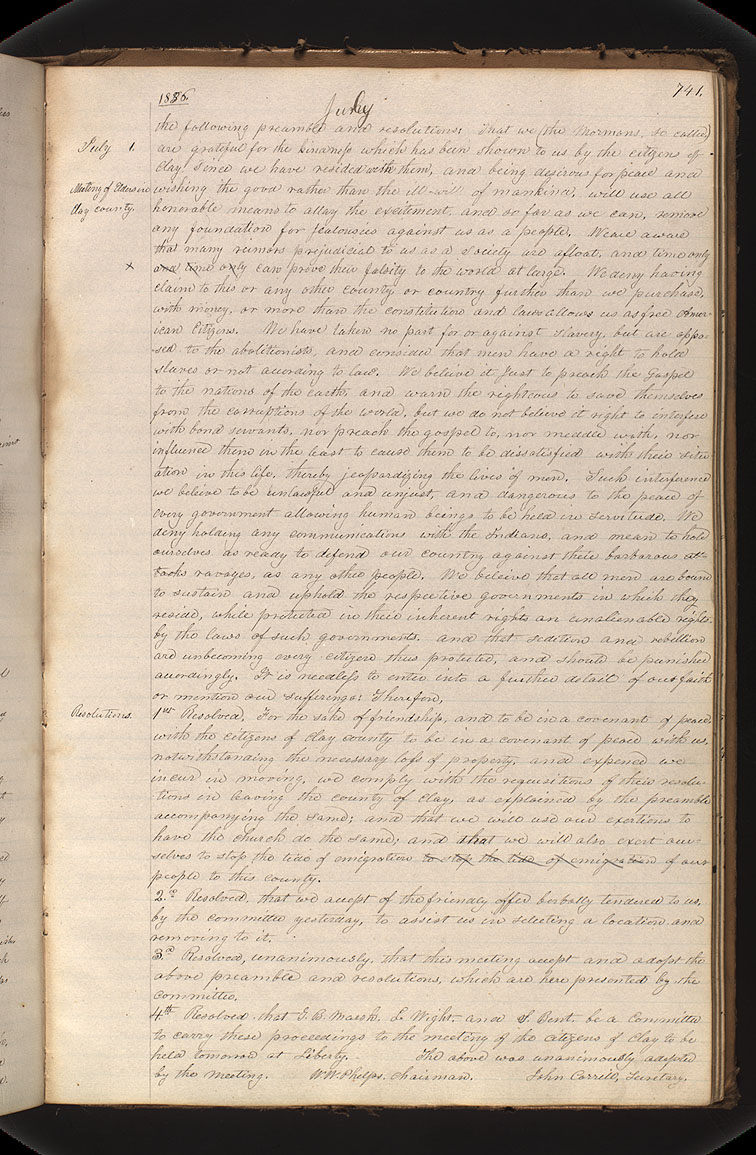 1836.
741.
July
the following preamble and resolutions: That we (the Mormons, so called)
July 1
are grateful for the kindness which has been shown to us by the citizens of
Clay since we have resided with them, and being desirous for peace and
Meeting of Elders in
wishing the good rather than the ill-will of mankind; will use all
Clay county.
honorable means to allay the excitement, and so far as we can, remove
any foundation for jealousies against us as a people. We are aware
that many rumors prejudicial to us as a society are afloat, and time only
x
and time only can prove their falsity to the world at large. We deny having
claim to this or any other county or country further than we purchase,
with money, or more than the constitution and laws allows us as free Amer-
ican Citizens. We have taken no part for or against slavery, but are oppo-
-sed to the abolitionists, and consider that men have a right to hold
slaves or not according to law. We beleive it just to preach the Gospel
to the nations of the earth, and warn the righteous to save themselves
from the corruptions of the world, but we do not believe it right to interfere
with bond servants, nor preach the gospel to, nor meddle with, nor
influence them in the least to cause them to be dissatisfied with their situ-
ation in this life, thereby jeopardizing the lives of men. Such interference
we beleive to be unlawful and unjust, and dangerous to the peace of
every government allowing human beings to be held in servitude. We
deny holding any communications with the Indians, and mean to hold
ourselves as ready to defend our country against their barbarous at-
tacks ravages, as any other people. We beleive that all men are bound
to sustain and uphold the respective governments in which they
reside, while protected in their inherent rights an unalienable rights
by the laws of such governments. and that sedition and rebellion
are unbecoming every citizen thus protected, and should be punished
accordingly. It is needless to enter into a further detail of our faith
or mention our sufferings: Therefore,
Resolutions.
1st Resolved, For the sake of friendship, and to be in a covenant of peace
with the citizens of Clay county to be in a covenant of peace with us,
notwithstanding the necessary loss of property, and expence we
incur in moving, we comply with the requisitions of their resolu-
tions in leaving the county of Clay, as explained by the preamble
accompanying the same; and that we will use our exertions to
have the church do the same; and that we will also exert our-
selves to stop the tide of emigration to stop the tide of emigration of our
people to this county.
2.d Resolved, that we accept of the friendly offer berbally tendered to us,
by the committee yesterday, to assist us in selecting a location and
removing to it.
3.d Resolved, unanimously, that this meeting accept and adopt the
above preamble and resolutions, which are here presented by the
Committee.
4th Resolved that T. B. Marsh, L. Wight, and S Bent be a Committee
to carry these proceedings to the meeting of the citizens of Clay to be
held tomorrow at Liberty. The above was unanimously adopted
by the meeting. W. W. Phelps. Chairman. John Corrill, Secretary.